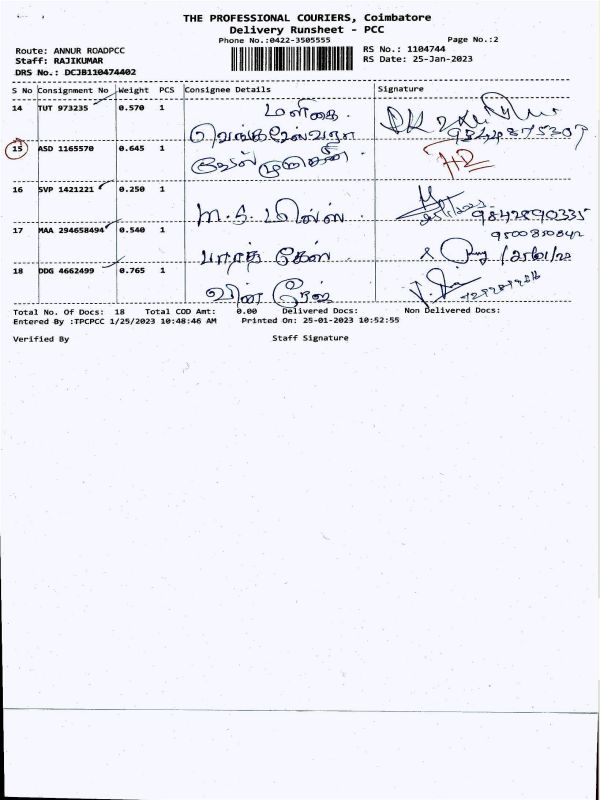 THE PROFESSIONAL COURIERS, Coimbatore
Delivery Runsheet - PCC
Phone No.:0422-3505555
Page No.:2
Route: ANNUR ROADPCC
RS No.: 1104744
Staff: RAJIKUMAR
RS Date: 25-Jan-2023
DRS No.: DCJB110474402
S No Consignment No Weight PCS Consignee Details Signature
14 TUT 973235 0.570 1 மளிகை
9844875307
15 ASD 1165570 0.645 1
16 SVP 1421221 0.250 1
9842890335
17 MAA 294658494 0.540 1 M.S. மில்ஸ்
18 DDG 4662499 0.765 1 பாரத் கேஸ்
Total No. Of Docs: 18 Total COD Amt: 0.00 Delivered Docs: Non Delivered Docs:
Entered By :TPCPCC 1/25/2023 10:48:46 AM Printed On: 25-01-2023 10:52:55
Verified By Staff Signature